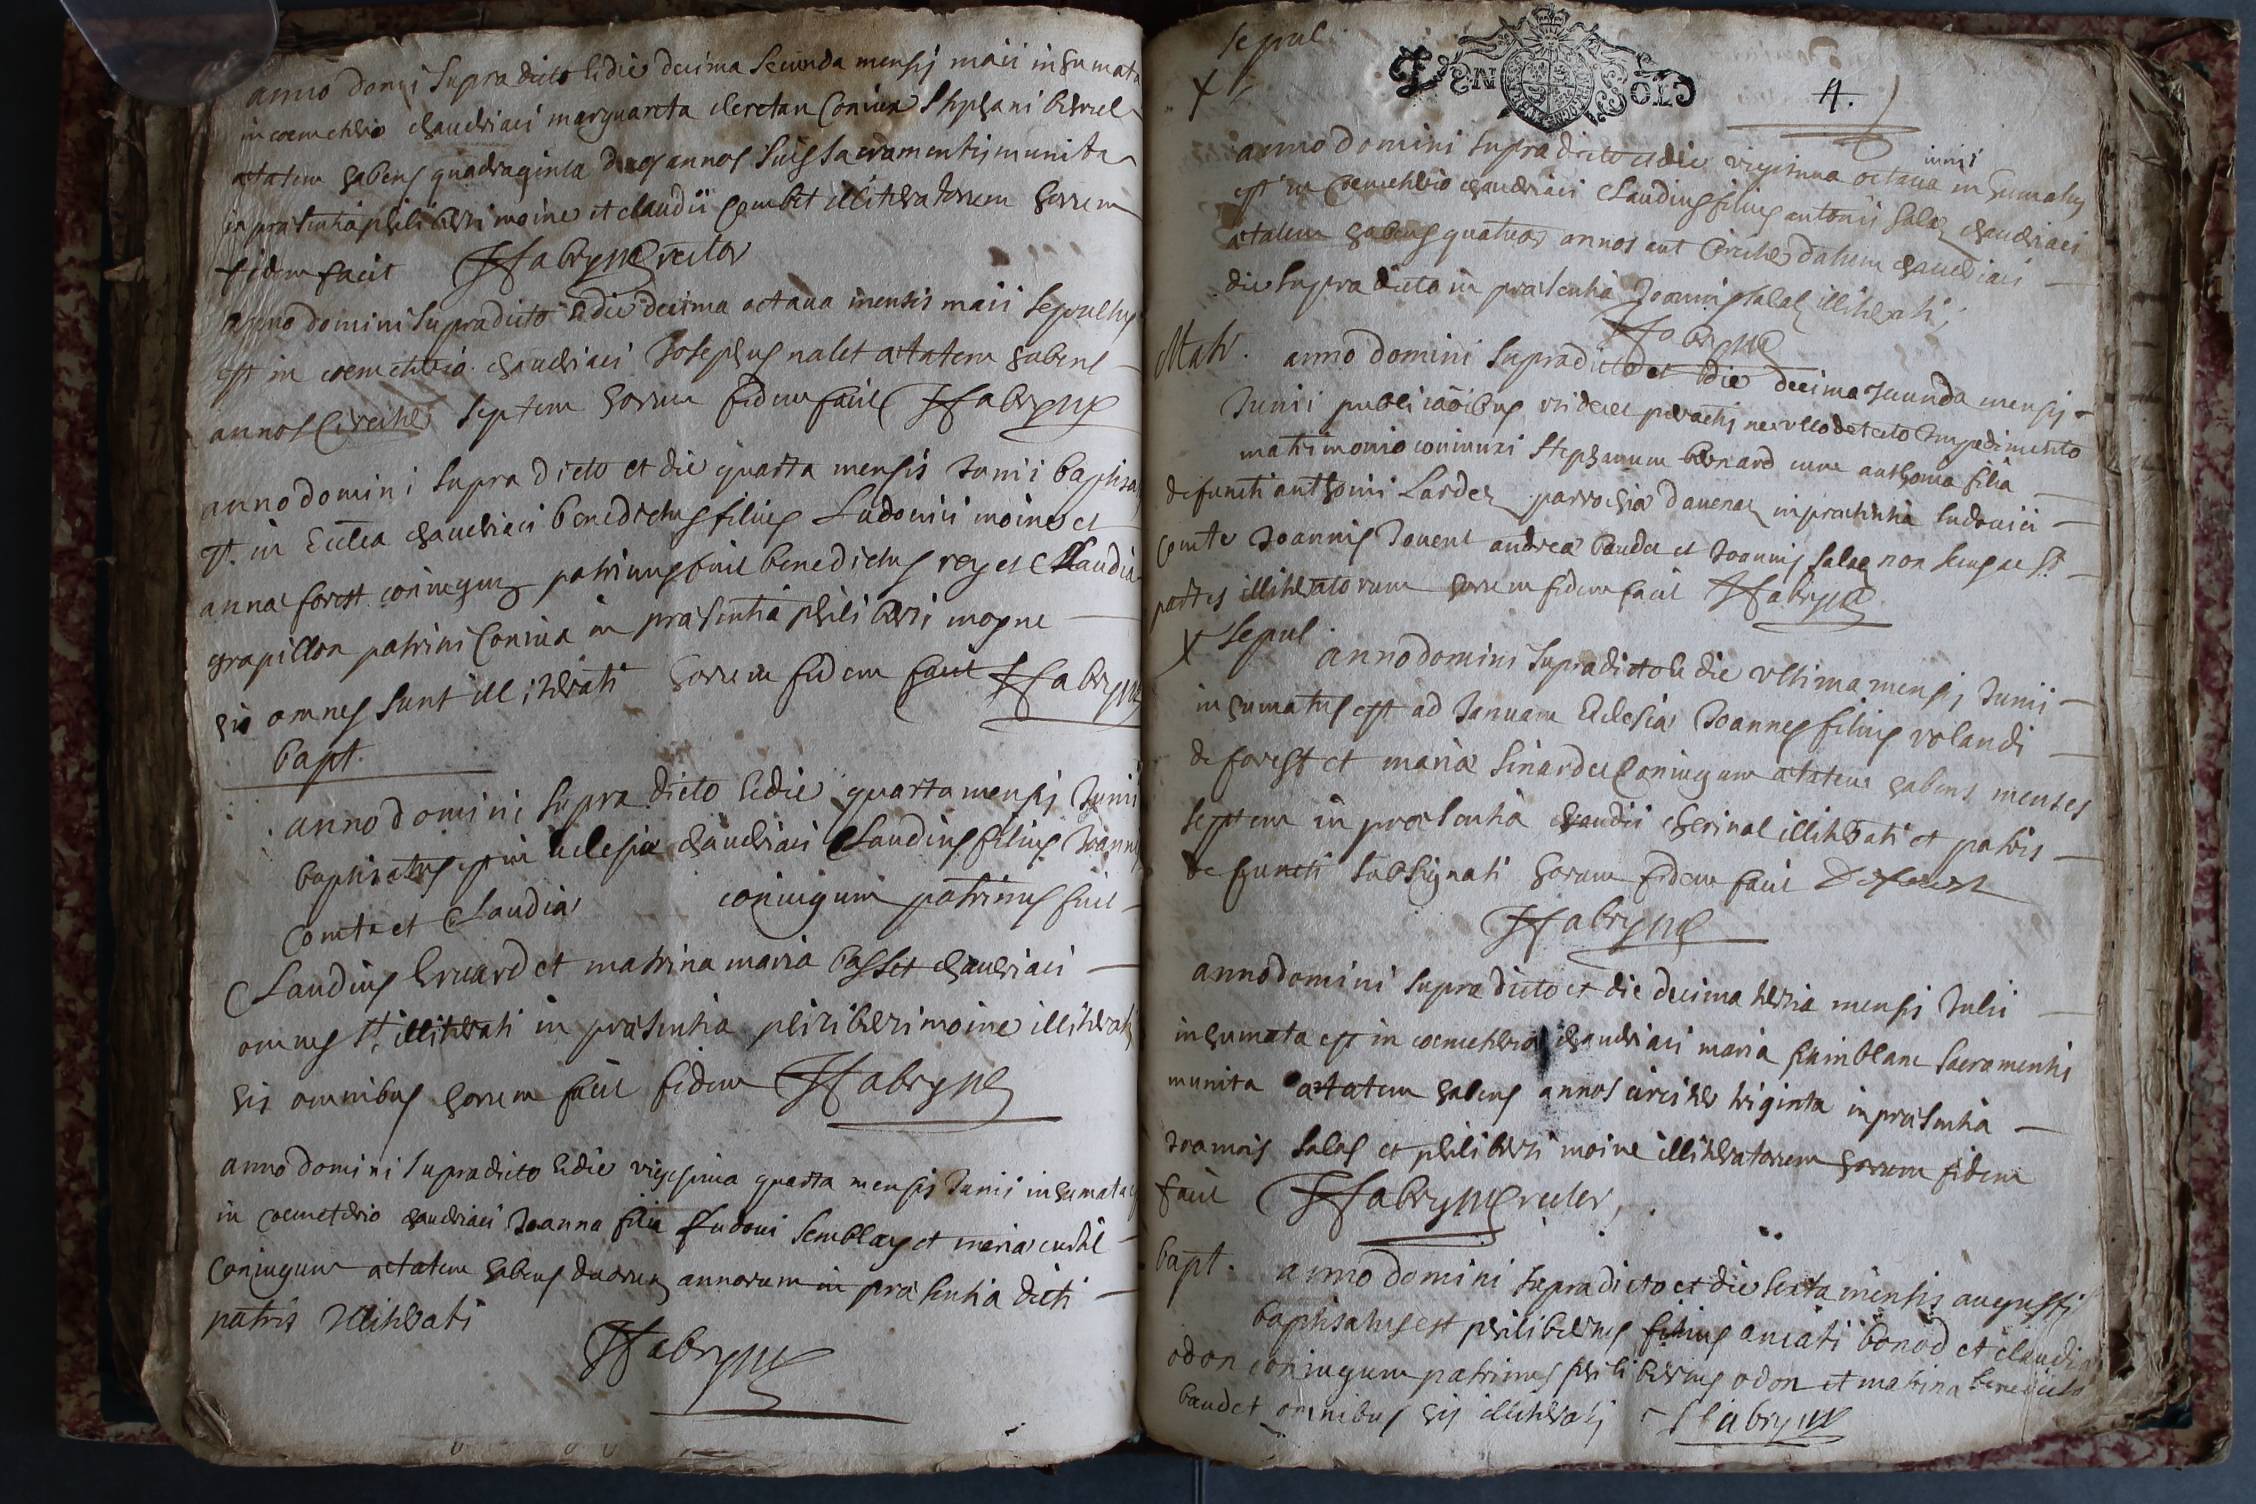 anno domi supradicto et die decima secunda mensis maii inhumata
in coemeterio chaudriaci marguareta cleretan coniux stephani
aetatem habens quadraginta duos annos suis sacramentis munita
in praesentia philiberti moine et claudii combet illitteratorum horum
fidem facit Habryne rector
anno domini supradicto et die decima octava mensis maii sepultus
est in coemetterio chaudriaci Josephus nalet aetatem habens
annos circiter septem horum fidem facit Habryne
anno domini supradicto et die quarta mensis Junii baptisa
est in Ecclea chaudriaci benedictus filius Ludovici moine et
annae forest coniugum patrinus fuit benedictus rey et Claudia
grapillon patrini coniux in praesentia philiberti moyne
his omnes sunt illitterati horum fidem facit Habryne
bapt.
anno domini supradicto et die quarta mensis Junii
baptisatus est in ecclesia chaudriaci Claudius filius Joannis
Comte et Claudiae coniugum patrinus fuit
Claudius Evrard et matrina maria basset chaudriaci
omnes st illitterati in praesentia philiberti moine illitterati
his omnibus horum facit fidem Habryne
anno domini supradicto et die vigesima quarta mensis Junii inhumata
in coemeterio chaudriaci Joanna filia Ludovi semblay et maria
coniugum aetatem habens duorum annorum in praesentia dicti
patris Illitterati
Habryne
sepul.
4.
anno domini supradicto et die vigesima octava iunii inhumatus
est in coemetterio chaudriaci Claudius filius antonii salaz chaudriaci
aetatem habens quatuor annos aut circiter datum chaudriaci
die supradicta in praesentia Joannis salaz illitterati
Habryne
Matr. anno domini supradicto et die decima secunda mensis
Junii publicaoibus peractis nec ullo detecto Impedimento
matrimonio coniunxi stephanum bernard cum anthonia filia
defuncti anthonii Lardez parrochiae davenaz in praesentia ludovici
comte Joannis Jouent andreae baudet et Joannis salaz non
partes illitteratorum horum fidem facit Habryne
sepul
anno domini supradicto et die ultima mensis Junii
inhumatus est ad Januam Ecclesiae Joannes filius rolandi
de forest et mariae sinardet coniugum aetatem habens menses
septem in praesentia claudii cherinal illitterati et patris
defuncti subsignati horum fidem facit Deforest
Habryne
anno domini supradicto et die decima tertia mensis Julii
inhumata est in coemetterio chaudriaci maria sacramentis
munita aetatem habens annos circiter triginta in praesentia
Joannis salaz et philiberti moine illitteratorum horum fidem
facit Habryne rector,
bapt. anno domini supradicto et die sexta mensis augusti
baptisatus est philibertus filius amati bonod et claudiae
odon coniugum patrinus philibertus odon et matrina benedicta
baudet omnibus his illitteratis Habryne